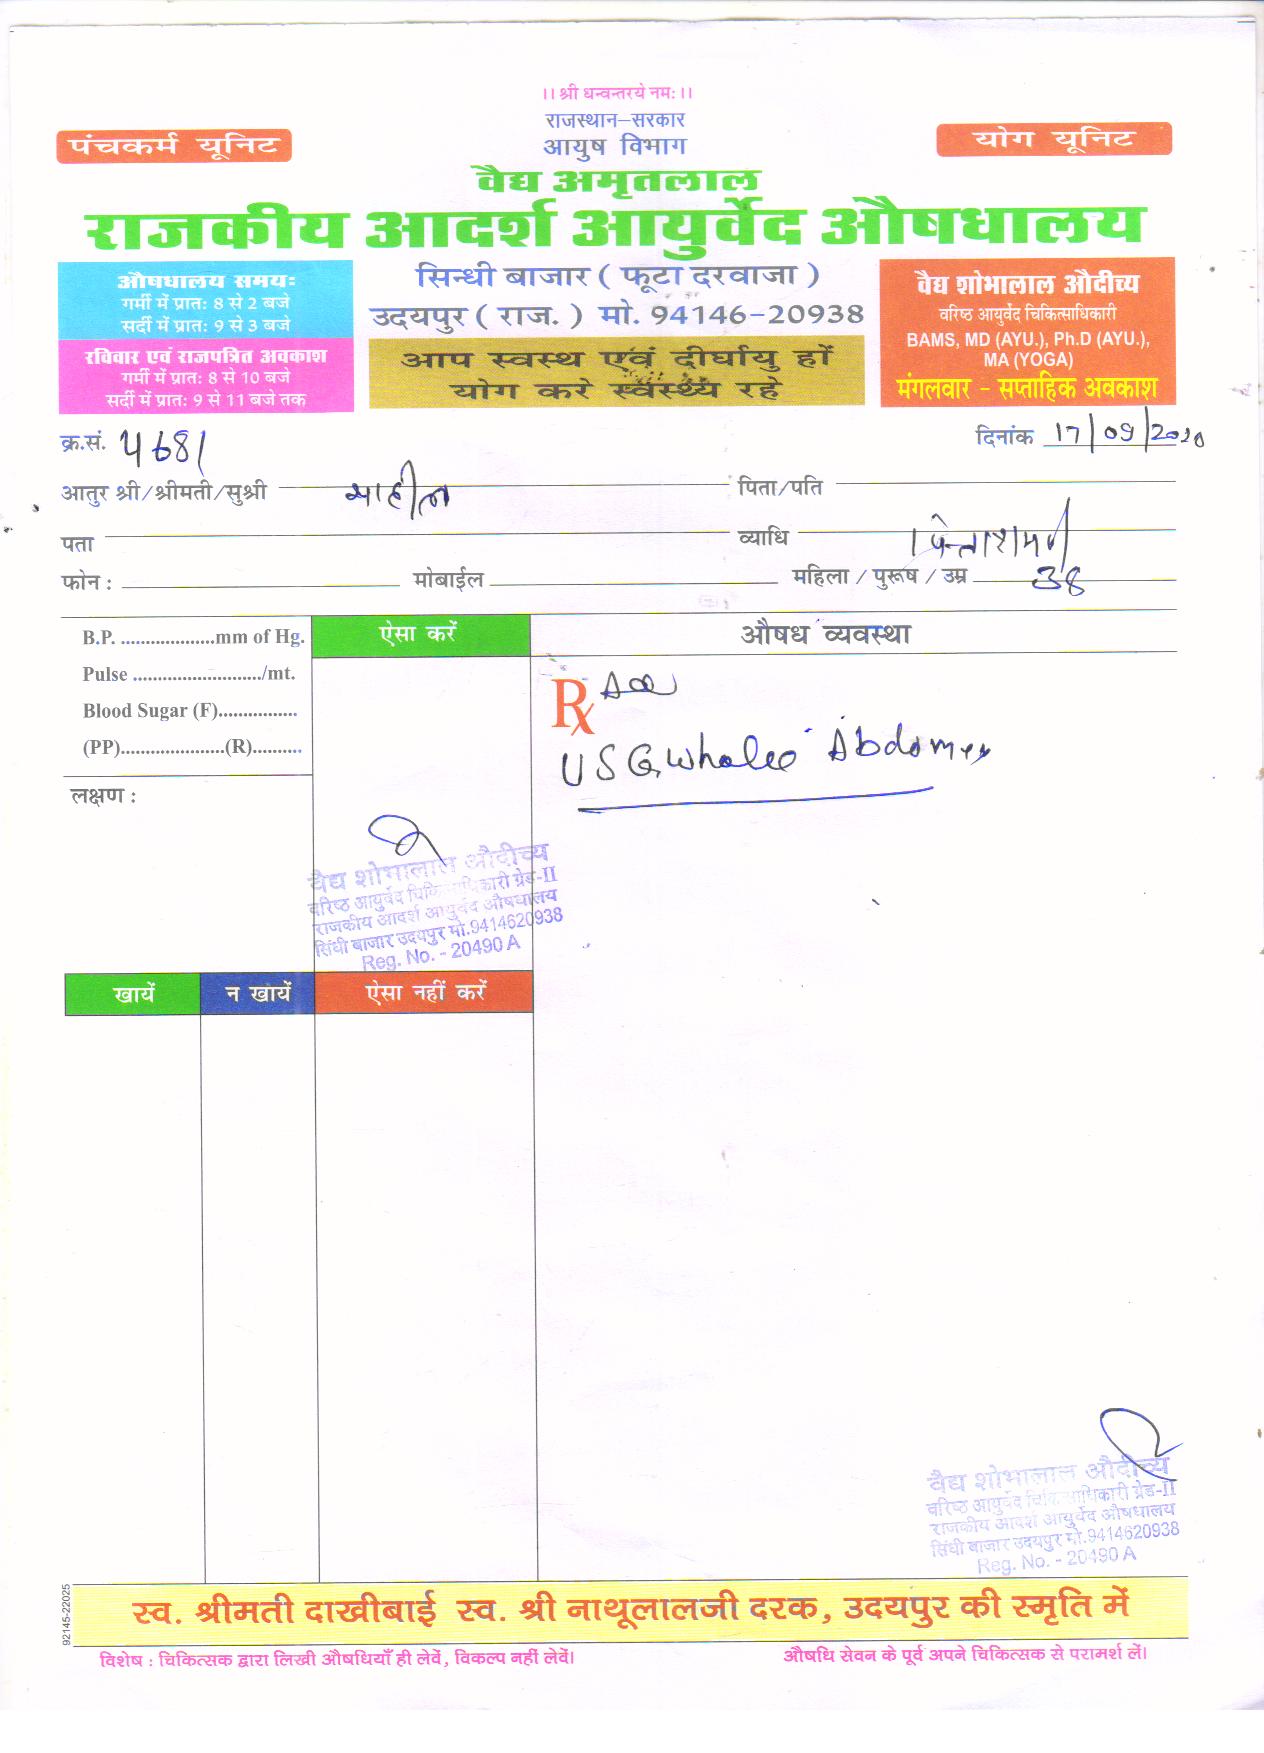 ।। श्री धन्वन्तरये नमः ।।
राजस्थान-सरकार
आयुष विभाग
पंचकर्म यूनिट
योग यूनिट
वैद्य अमृतलाल
राजकीय आदर्श आयुर्वेद औषधालय
सिन्धी बाजार ( फूटा दरवाजा )
उदयपुर ( राज. ) मो. 94146-20938
आप स्वस्थ एवं दीर्घायु हों
योग करे स्वस्थ्य रहे
औषधालय समयः
गर्मी में प्रातः 8 से 2 बजे
सर्दी में प्रातः 9 से 3 बजे
रविवार एवं राजपत्रित अवकाश
गर्मी में प्रातः 8 से 10 बजे
सर्दी में प्रातः 9 से 11 बजे तक
वैद्य शोभालाल औदीच्य
वरिष्ठ आयुर्वेद चिकित्साधिकारी
BAMS, MD (AYU.), Ph.D (AYU.),
MA (YOGA)
मंगलवार - सप्ताहिक अवकाश
क्र.सं. 4681 दिनांक 17/09/2020
आतुर श्री/श्रीमती/सुश्री पिता/पति
पता व्याधि
फोन : मोबाईल महिला / पुरूष / उम्र 38
B.P. ...................mm of Hg.
Pulse ........................../mt.
Blood Sugar (F)................
(PP).....................(R)..........
लक्षण :
ऐसा करें
औषध व्यवस्था
Rx
USG Whole Abdomen
वैद्य शोभालाल औदीच्य
वरिष्ठ आयुर्वेद चिकित्साधिकारी ग्रेड-II
राजकीय आदर्श आयुर्वेद औषधालय
सिंधी बाजार उदयपुर मो.9414620938
Reg. No. - 20490 A
खायें
न खायें
ऐसा नहीं करें
वैद्य शोभालाल औदीच्य
वरिष्ठ आयुर्वेद चिकित्साधिकारी ग्रेड-II
राजकीय आदर्श आयुर्वेद औषधालय
सिंधी बाजार उदयपुर मो.9414620938
Reg. No. - 20490 A
92145-22025
स्व. श्रीमती दाखीबाई स्व. श्री नाथूलालजी दरक, उदयपुर की स्मृति में
विशेष : चिकित्सक द्वारा लिखी औषधियाँ ही लेवें, विकल्प नहीं लेवें।
औषधि सेवन के पूर्व अपने चिकित्सक से परामर्श लें।